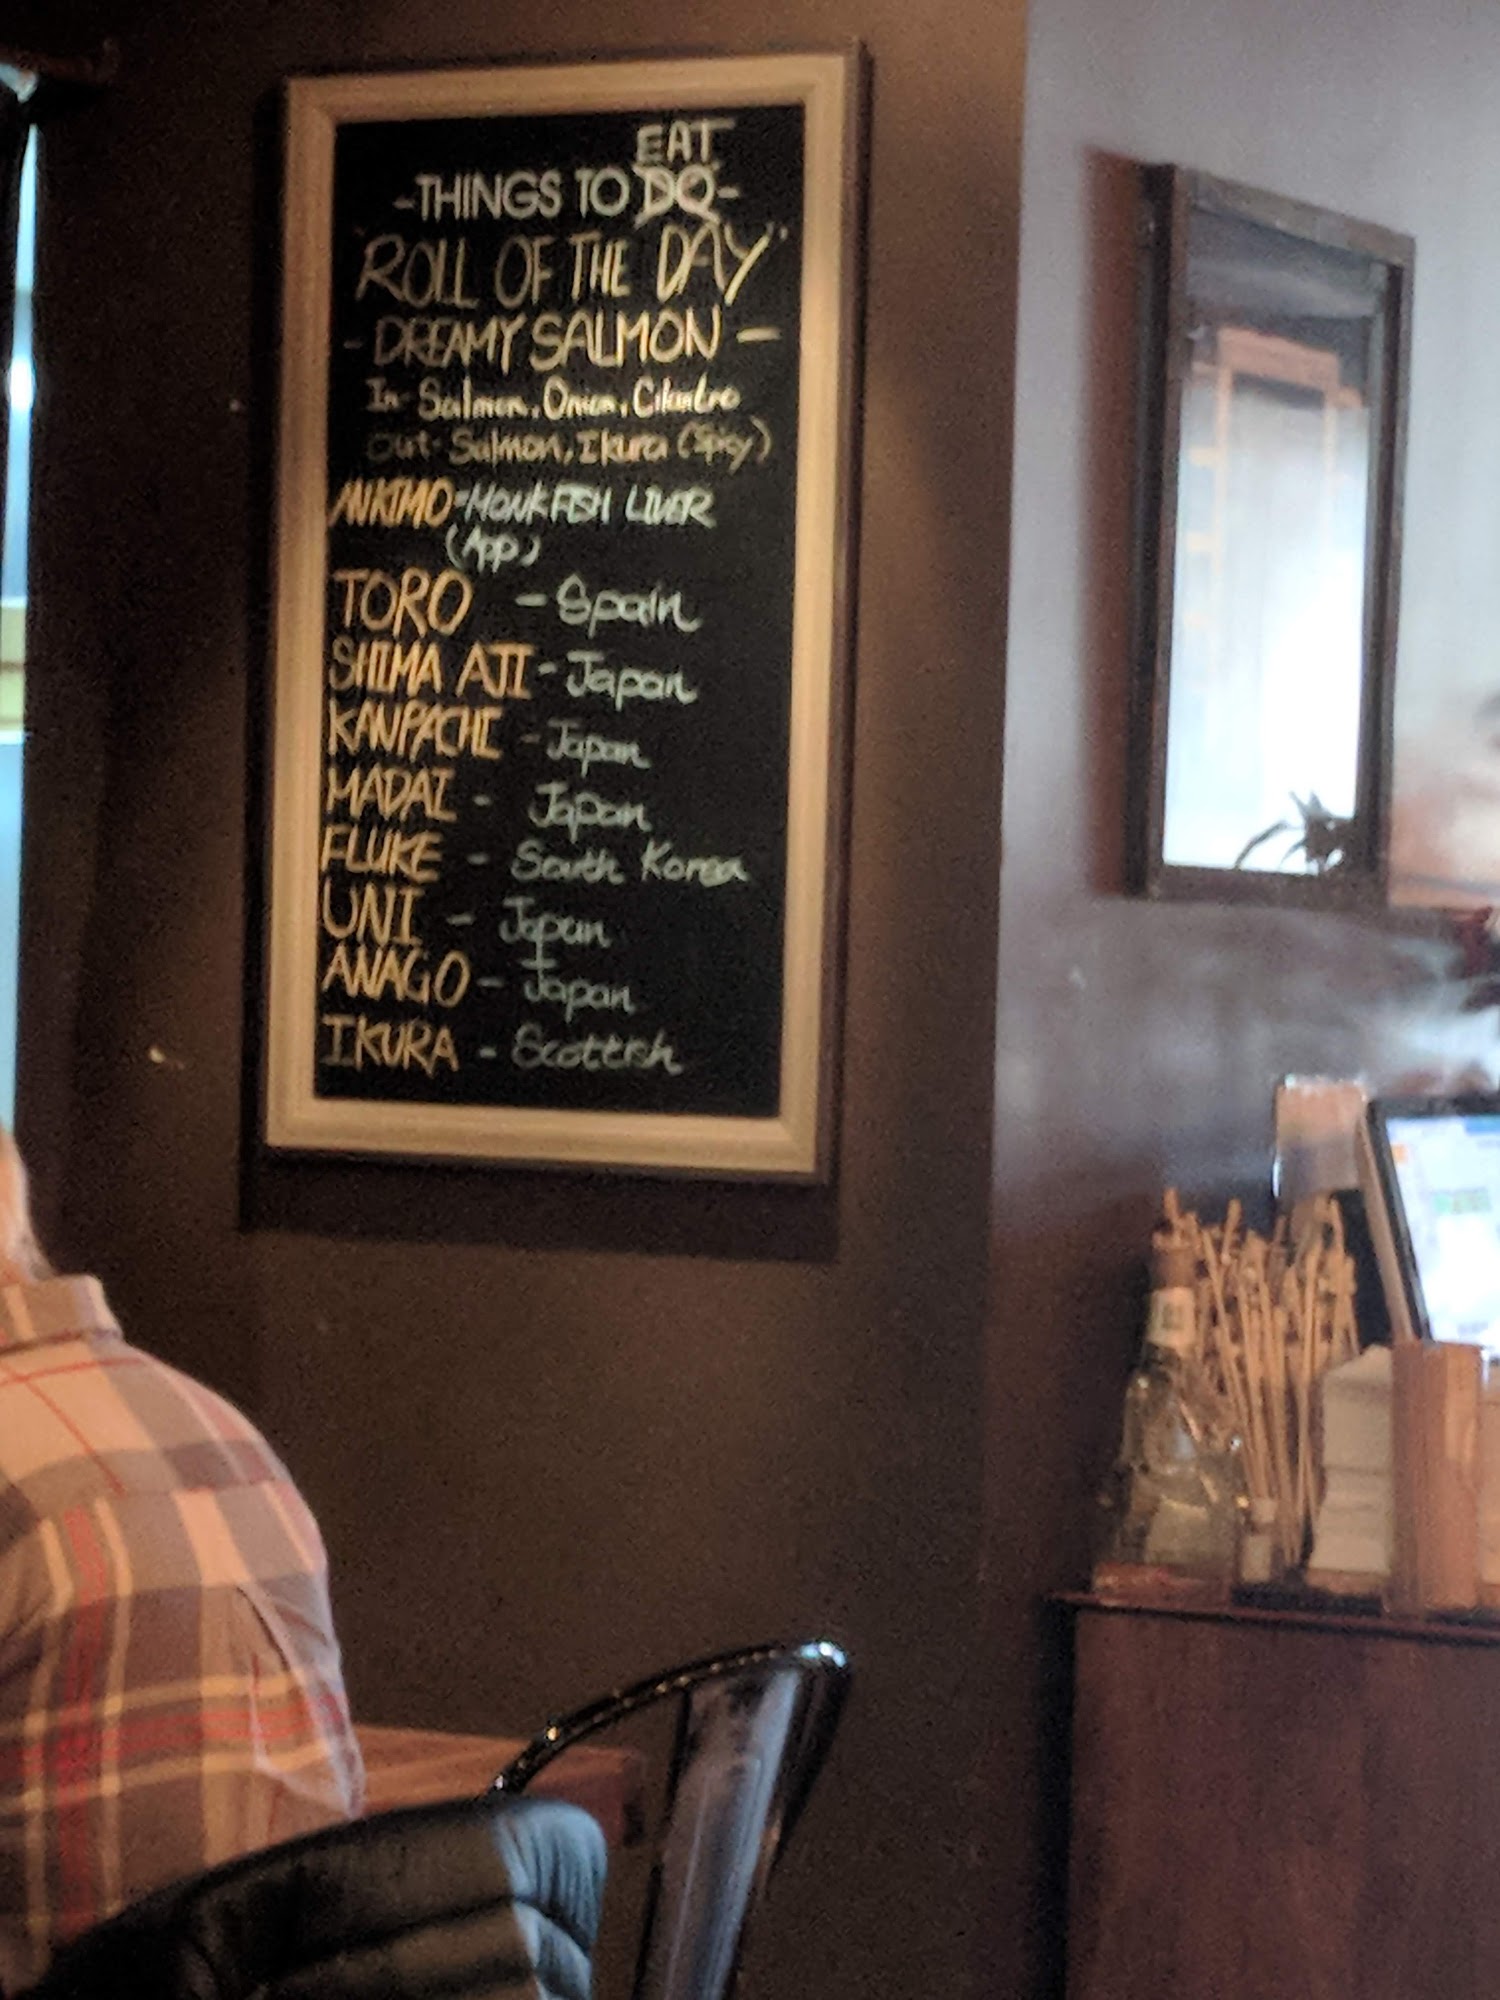 EAT
-THINGS TO DO-
"ROLL OF THE DAY"
- DREAMY SALMON -
In- Salmon, Onion, Cilantro
Out- Salmon, Ikura (Spicy)
ANKIMO-MONKFISH LIVER
(App)
TORO - Spain
SHIMA AJI - Japan
KANPACHI - Japan
MADAI - Japan
FLUKE - South Korea
UNI - Japan
ANAGO - Japan
IKURA - Scottish